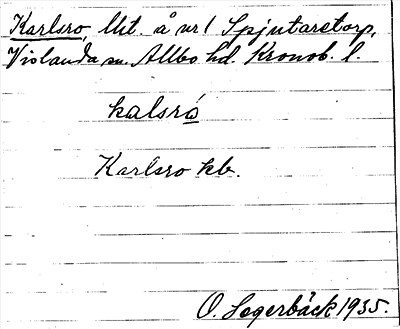 Karlsro, lht. å nr 1 Spjutaretorp,
Vislanda sn. Allbo hd. Kronob. l.
kalsró
Karlsro kb.
O. Segerbäck 1935.